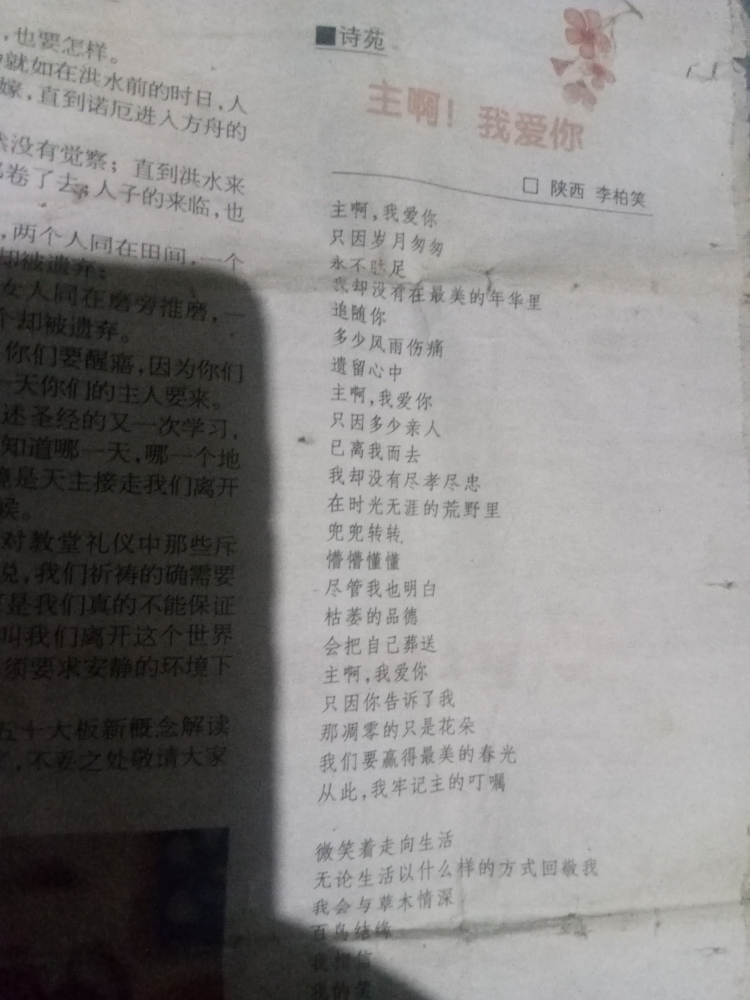 ，也要怎样。
就如在洪水前的时日，人
嫁，直到诺厄进入方舟的
然没有觉察；直到洪水来
卷了去，人子的来临，也
，两个人同在田间，一个
却被遗弃；
女人同在磨旁推磨，一
个却被遗弃。
你们要醒寤，因为你们
一天你们的主人要来。
述圣经的又一次学习，
知道哪一天，哪一个地
竟是天主接走我们离开
候。
对教堂礼仪中那些斥
说，我们祈祷的确需要
可是我们真的不能保证
叫我们离开这个世界
须要求安静的环境下
五十大板新概念解读
，不妥之处敬请大家
■诗苑
主啊！我爱你
□ 陕西 李柏笑
主啊，我爱你
只因岁月匆匆
永不驻足
我却没有在最美的年华里
追随你
多少风雨伤痛
遗留心中
主啊，我爱你
只因多少亲人
已离我而去
我却没有尽孝尽忠
在时光无涯的荒野里
兜兜转转
懵懵懂懂
尽管我也明白
枯萎的品德
会把自己葬送
主啊，我爱你
只因你告诉了我
那凋零的只是花朵
我们要赢得最美的春光
从此，我牢记主的叮嘱
微笑着走向生活
无论生活以什么样的方式回敬我
我会与草木情深
百鸟结缘
我相信
我的笑